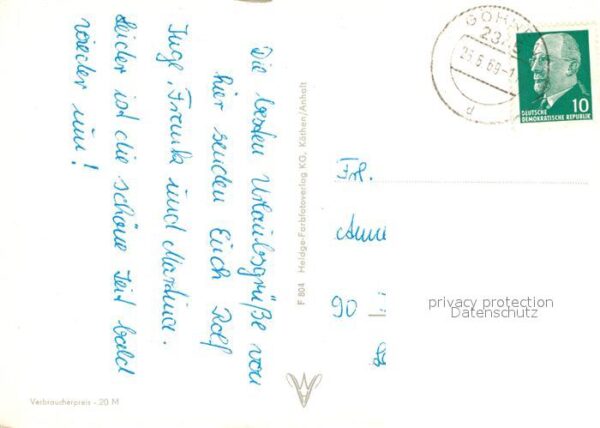 Die besten Urlaubsgrüße von
hier senden Euch Rolf
Inge, Frank und Martina.
Leider ist die schöne Zeit bald
wieder um!
F 804 Heldge-Farbfotoverlag KG, Köthen/Anhalt
Verbraucherpreis - 20 M
GÖHR
25.6.69-1
d
10
DEUTSCHE
DEMOKRATISCHE REPUBLIK
Frl.
90
privacy protection
Datenschutz